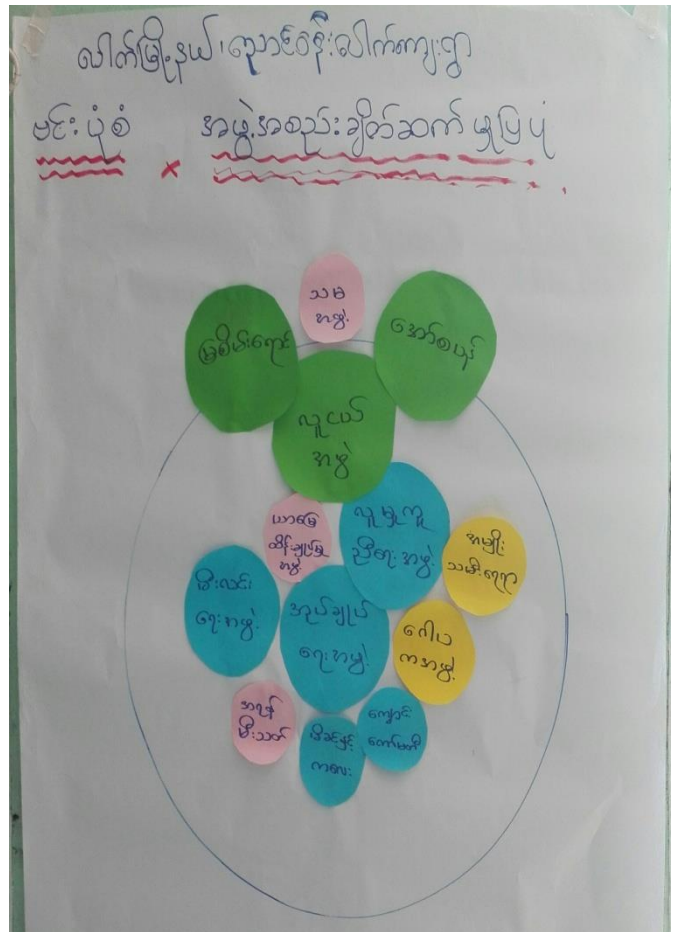 ပေါက်မြို့နယ်၊ ညောင်ဝန်းပေါက်ကျေးရွာ
ဗင်းပုံစံ x အဖွဲ့အစည်းချိတ်ဆက်မှုပြပုံ
သမ
အဖွဲ့
မြစိမ်းရောင်
အော်စပန်
လူငယ်
အဖွဲ့
ယာမြေ
ထိန်းချုပ်မှု
အဖွဲ့
လူမှုကူ
ညီရေးအဖွဲ့
အမျိုး
သမီးရေးရာ
မီးလင်း
ရေးအဖွဲ့
အုပ်ချုပ်
ရေးအဖွဲ့
ဂေါပ
ကအဖွဲ့
အရန်
မီးသတ်
မိခင်နှင့်
ကလေး
ကျောင်း
ကော်မတီ